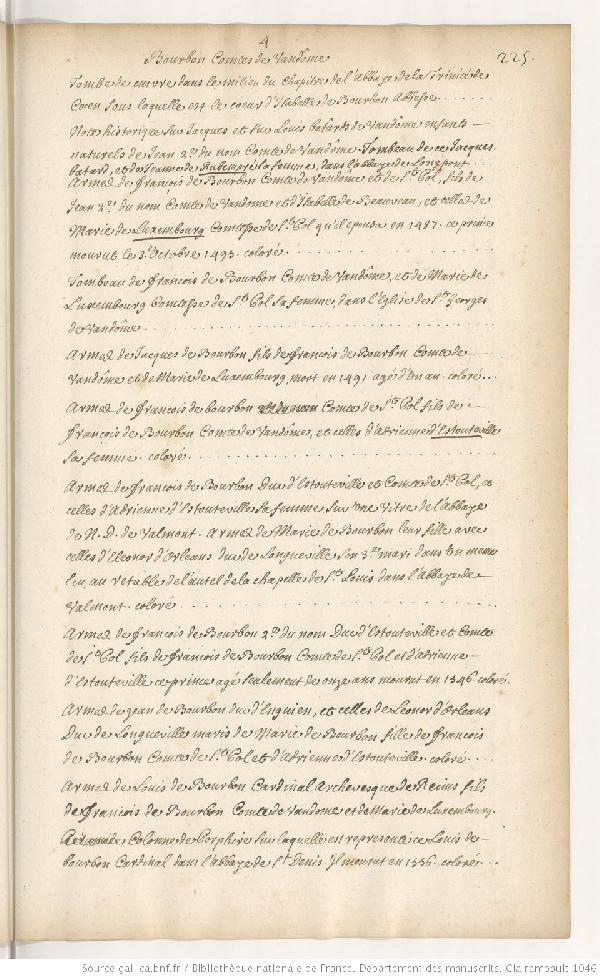 4
Bourbon Comtes de Vandôme 225.
Tombe de cuivre dans le milieu du chapitre de l'Abbaye de la Trinité de
Caen sous laquelle est le coeur d'Isabelle de Bourbon Abbesse
Notes historique sur Jacques et sur Louis batards de Vandôme enfants
naturels de Jean 2.d du nom Comte de Vandôme. Tombeau de ce Jacques
batard, et de Jeanne de Rubempré sa femme, dans l'abbaye de Longpont
Armes de françois de Bourbon Comte de Vandôme et de St. Pol, fils de
Jean 2.d du nom Comte de Vandome et d'Isabelle de Beauveau, et celles de
Marie de Luxembourg Comtesse de St. Pol qu'il epousa en 1487. ce prince
mourut le 3.e Octobre 1495. coloré
Tombeau de françois de Bourbon Comte de Vandôme, et de Marie de
Luxembourg Comtesse de St. Pol sa femme, dans l'Eglise de St. Georges
de Vandôme
Armes de Jacques de Bourbon, fils de françois de Bourbon Comte de
Vandôme et de Marie de Luxembourg, mort en 1491 agé d'un an. coloré
Armes de françois de bourbon Comte de St. Pol fils de
françois de Bourbon Comte de Vandômes, et celles d'Adrienne d'Estouteville
sa femme. coloré
Armes de françois de Bourbon Duc d'Estouteville et Comte de St. Pol, et
celles d'Adrienne d'Estouteville sa femme sur une Vitre de l'abbaye
de N. D. de Valmont. Armes de Marie de Bourbon leur fille avec
celles d'Eleonor d'Orleans duc de Longueville son 3.e mari dans un meme
lieu au retable de l'autel de la chapelle de St. Louis dans l'Abbaye de
Valmont. coloré
Armes de françois de Bourbon 2.d du nom Duc d'Estouteville et Comte
de St. Pol fils de françois de Bourbon Comte de St. Pol et d'Adrienne
d'Estouteville ce prince agé seulement de onze ans mourut en 1546 coloré.
Armes de Jean de Bourbon duc d'Enguien, et celles de Leonor d'Orleans
Duc de Longueville maris de Marie de Bourbon fille de françois
de Bourbon Comte de St. Pol et d'Adrienne d'Estouteville coloré
Armes de Louis de Bourbon Cardinal Archevesque de Reims fils
de françois de Bourbon Comte de Vandome et de Marie de Luxembourg.
Colonne de Porphire sur laquelle est representé ce Louis de
bourbon Cardinal dans l'abbaye de St. Denis. Il mourut en 1556. coloré
Source gallica.bnf.fr / Bibliothèque nationale de France. Département des manuscrits. Clairambault 1046